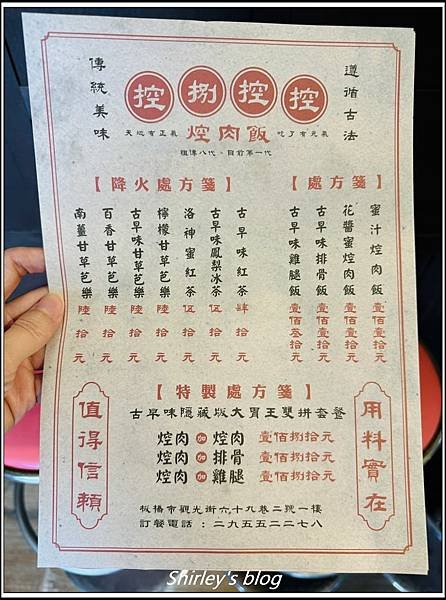 遵循古法
傳統美味
控捌控控
天地有正氣 焢肉飯 吃了有元氣
祖傳八代、目前第一代
【處方箋】
蜜汁焢肉飯 壹佰壹拾元
花醬蜜焢肉飯 壹佰壹拾元
古早味排骨飯 壹佰壹拾元
古早味雞腿飯 壹佰叁拾元
【降火處方箋】
古早味紅茶 肆拾元
古早味鳳梨冰茶 伍拾元
洛神蜜紅茶 伍拾元
檸檬甘草芭樂 陸拾元
古早味甘草芭樂 陸拾元
百香甘草芭樂 陸拾元
南薑甘草芭樂 陸拾元
【特製處方箋】
古早味隱藏版大胃王雙拼套餐
焢肉加焢肉 壹佰捌拾元
焢肉加排骨 壹佰捌拾元
焢肉加雞腿 壹佰捌拾元
用料實在
值得信賴
板橋市觀光街六十九巷二號一樓
訂餐電話：二九五五二二七八
Shirley's blog